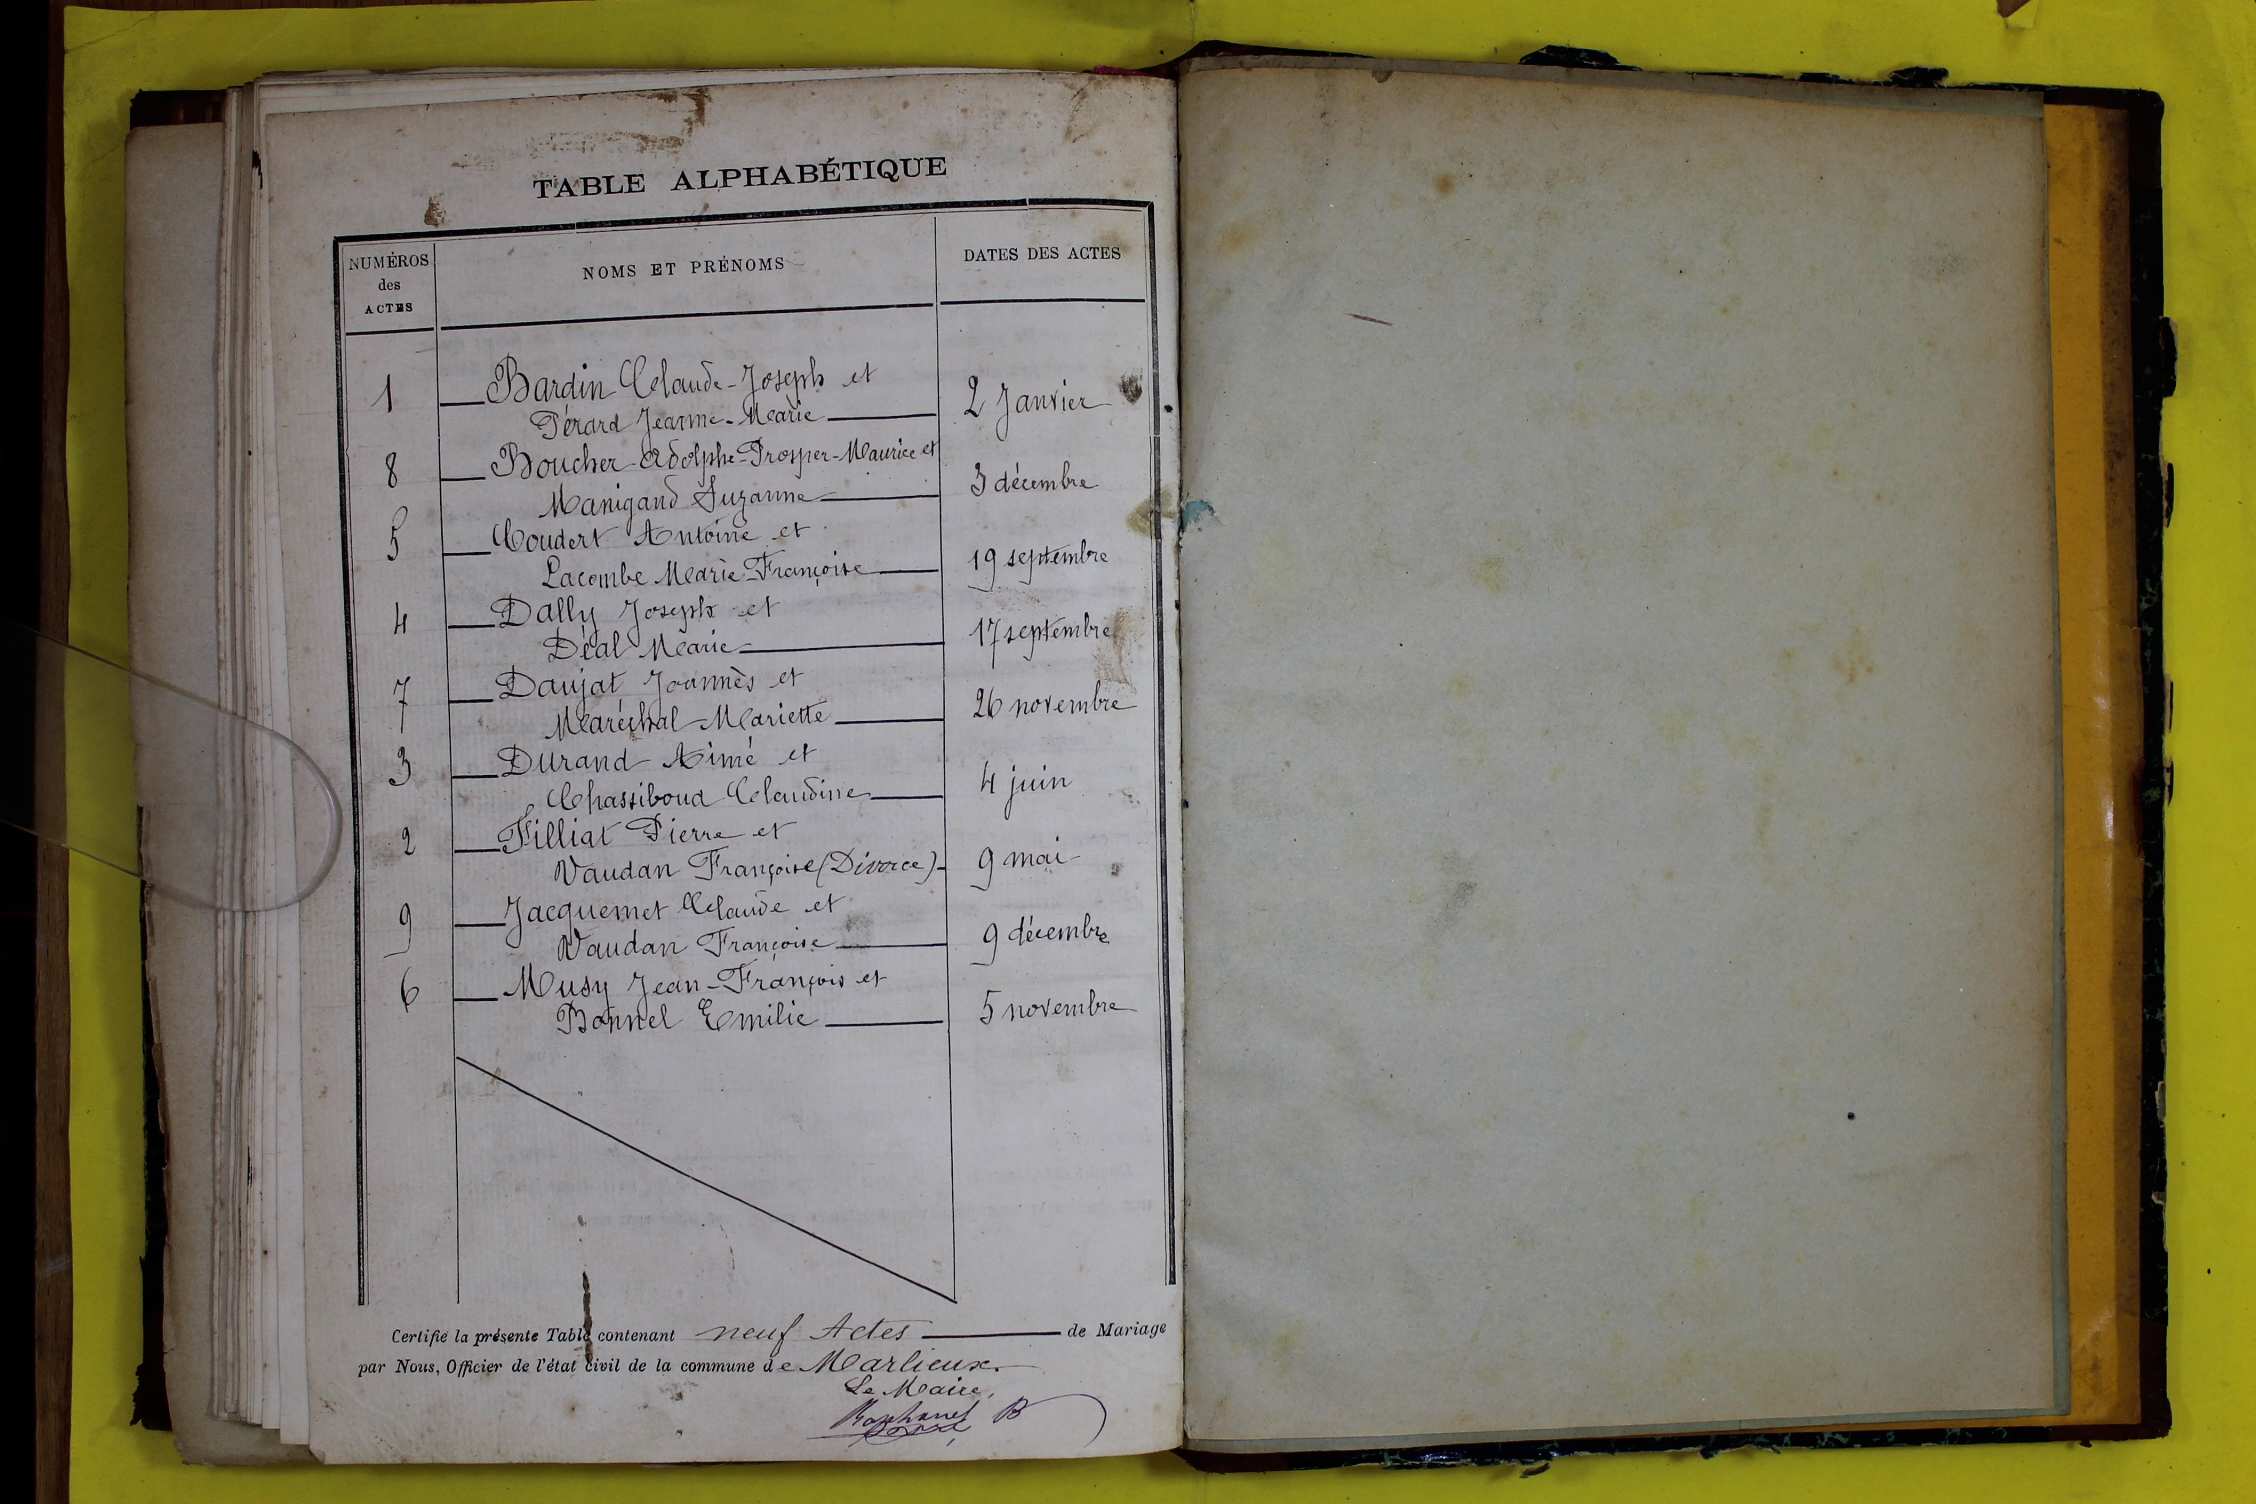 TABLE ALPHABÉTIQUE
NUMÉROS des ACTES
NOMS ET PRÉNOMS
DATES DES ACTES
1 Bardin Claude-Joseph et
Pérard Jeanne-Marie 2 Janvier
8 Boucher Adolphe-Prosper-Maurice et
Manigand Suzanne 3 décembre
5 Coudert Antoine et
Lacombe Marie Françoise 19 septembre
4 Dally Joseph et
Déal Marie 17 septembre
7 Daujat Joannès et
Maréchal Mariette 26 novembre
3 Durand Aimé et
Chassiboud Claudine 4 juin
2 Filliat Pierre et
Vaudan Françoise (Divorce) 9 mai
9 Jacquemet Claude et
Vaudan Françoise 9 décembre
6 Musy Jean-François et
Bonnel Emilie 5 novembre
Certifié la présente Table contenant neuf Actes de Mariage
par Nous, Officier de l'état civil de la commune de Marlieux.
Le Maire,
B